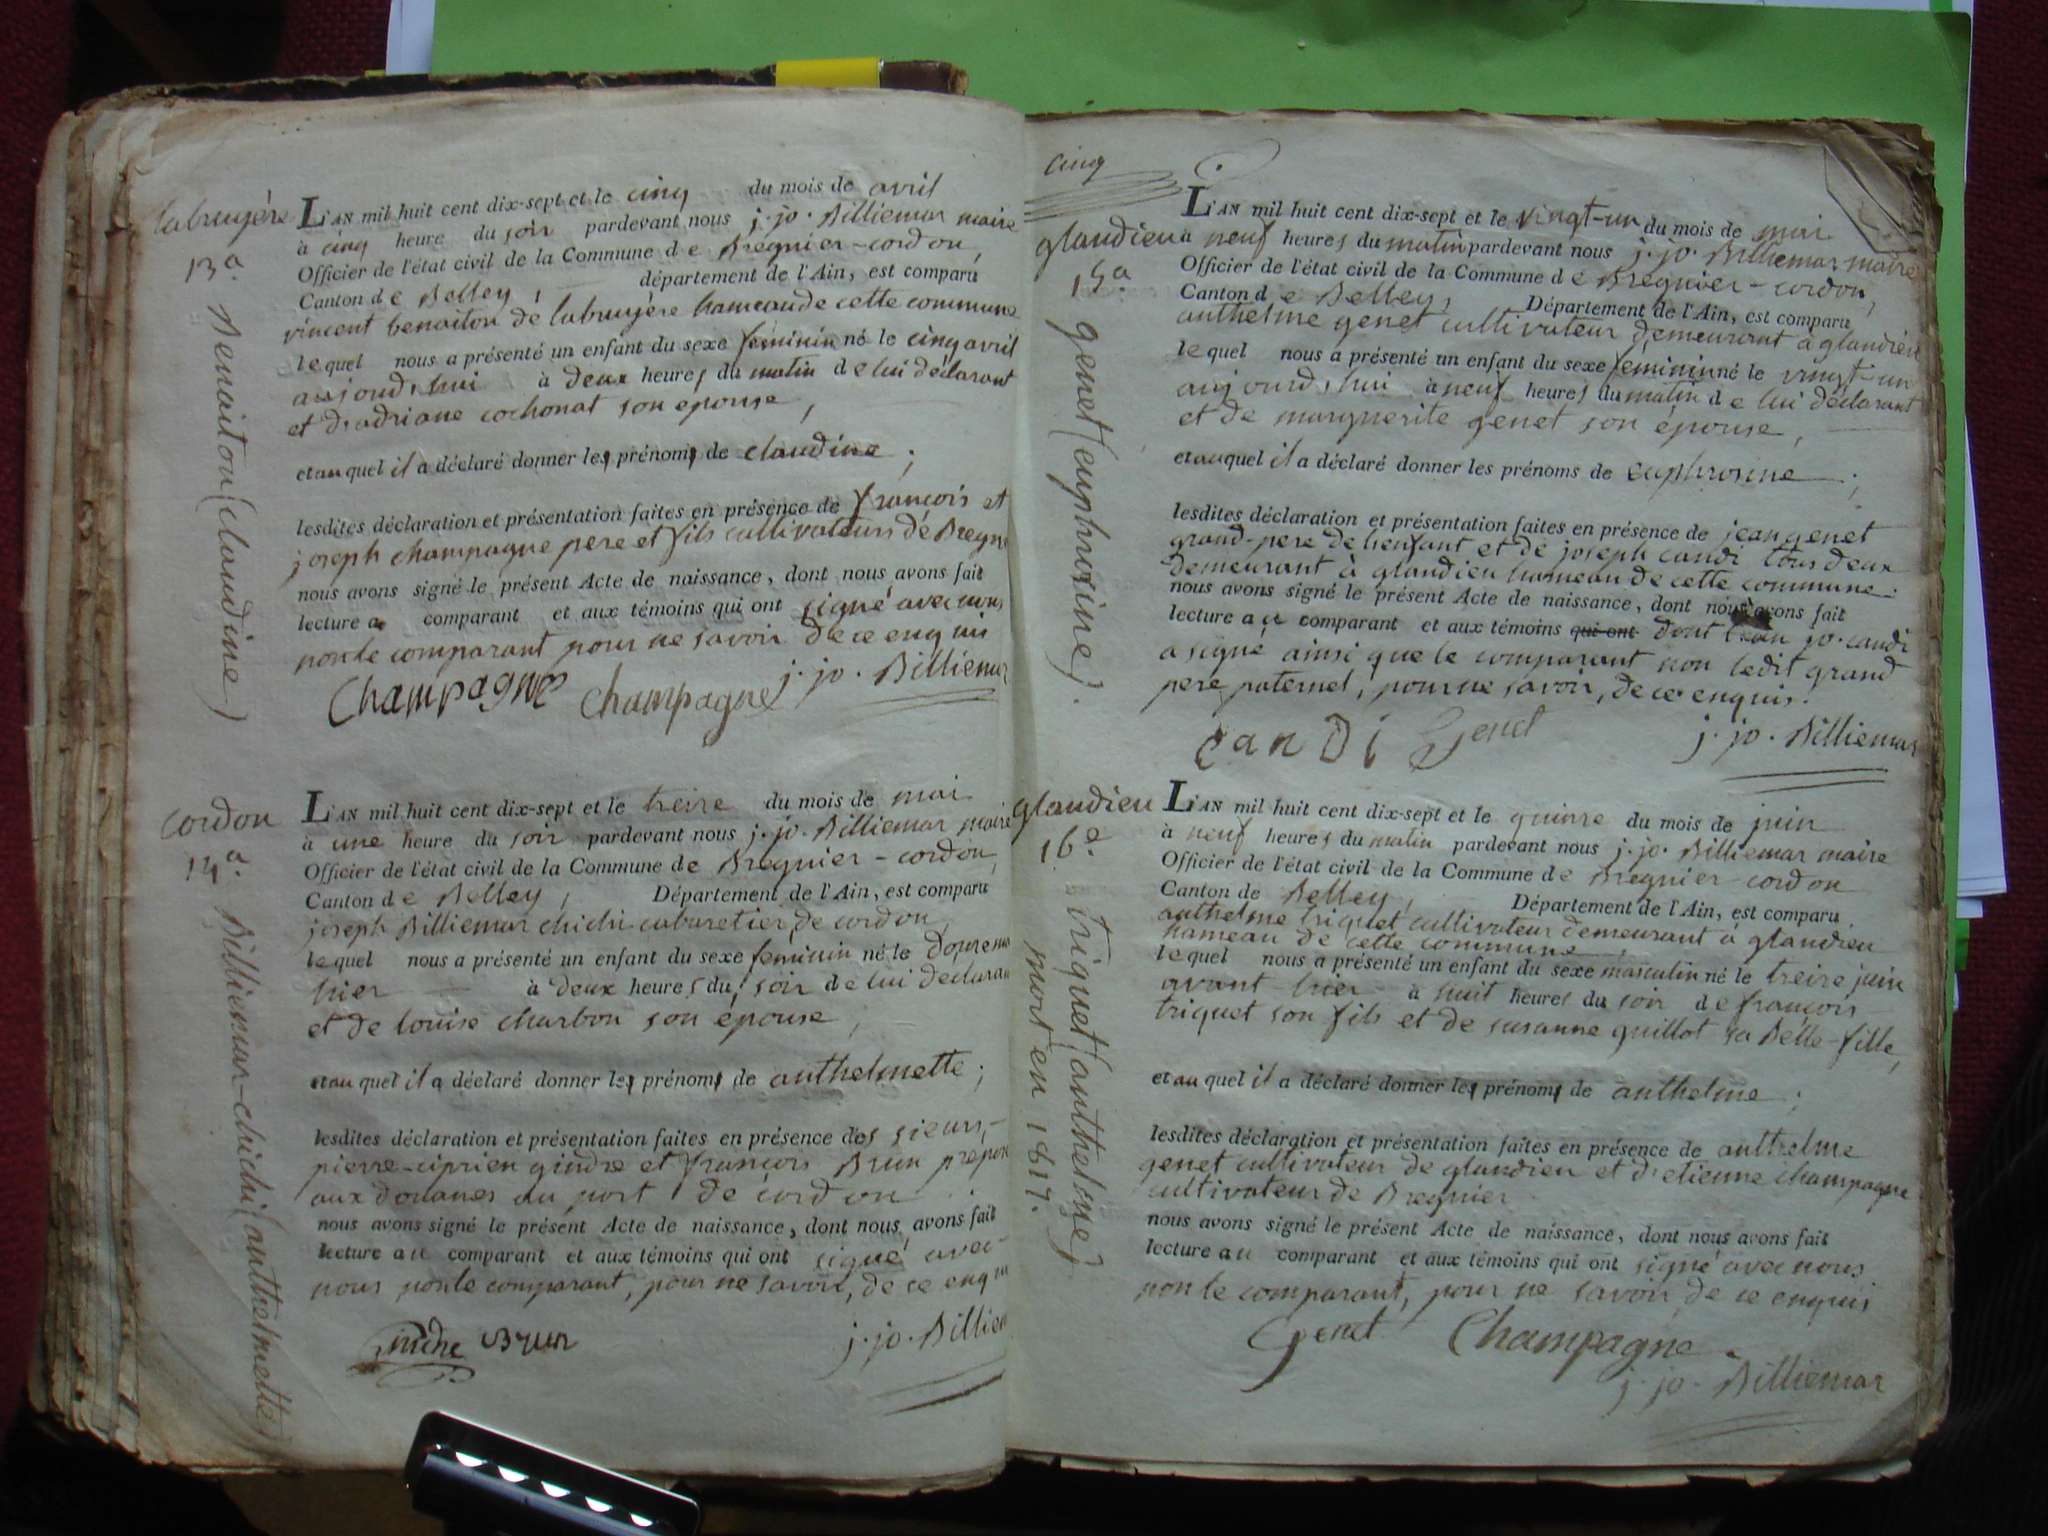 labruyère
13e.
Benaiton (claudine)
L'AN mil huit cent dix-sept et le cinq du mois de avril
à cinq heure du soir pardevant nous j. jo. Billiemar maire
Officier de l'état civil de la Commune de Bregnier-cordon,
Canton de Belley, département de l'Ain, est comparu
vincent benaiton de labruyère hameau de cette commune
lequel nous a présenté un enfant du sexe féminin né le cinq avril
aujourd'hui à deux heures du matin de lui déclarant
et d'adriane cochonat son epouse,
et auquel il a déclaré donner les prénoms de claudine ;
lesdites déclaration et présentation faites en présence de françois et
joseph champagne pere et fils cultivateurs de Bregn
nous avons signé le présent Acte de naissance, dont nous avons fait
lecture au comparant et aux témoins qui ont signé avec nous
non le comparant pour ne savoir de ce enquis
Champagne champagne j. jo. Billiemar
cordon
14e.
Billiemar-chichi (anthelmette)
L'AN mil huit cent dix-sept et le treize du mois de mai
à une heure du soir pardevant nous j. jo. Billiemar maire
Officier de l'état civil de la Commune de Bregnier-cordon,
Canton de Belley, Département de l'Ain, est comparu
joseph Billiemar chichi cabaretier de cordon,
lequel nous a présenté un enfant du sexe féminin né le douze mai
hier à deux heures du soir de lui déclaran
et de louise charbon son epouse,
et au quel il a déclaré donner les prénoms de anthelmette ;
lesdites déclaration et présentation faites en présence des sieurs
pierre-ciprien gindre et françois Brun prepos
aux douanes au port de cordon
nous avons signé le présent Acte de naissance, dont nous avons fait
lecture au comparant et aux témoins qui ont signé avec
nous non le comparant, pour ne savoir, de ce enqui
Gindre Brun j. jo. Billiem
cinq
glandieu
15e.
genet (euphrosine).
L'AN mil huit cent dix-sept et le vingt-un du mois de mai
à neuf heures du matin pardevant nous j. jo. Billiemar maire
Officier de l'état civil de la Commune de Bregnier-cordon,
Canton de Belley, Département de l'Ain, est comparu
anthelme genet cultivateur demeurant à glandieu
lequel nous a présenté un enfant du sexe féminin né le vingt-un
aujourd'hui à neuf heures du matin de lui déclarant
et de marguerite genet son épouse,
et auquel il a déclaré donner les prénoms de euphrosine ;
lesdites déclaration et présentation faites en présence de jean genet
grand-pere de l'enfant et de joseph candi tous deux
demeurant à glandieu hameau de cette commune.
nous avons signé le présent Acte de naissance, dont nous avons fait
lecture au comparant et aux témoins qui ont dont jo. candi
a signé ainsi que le comparant non ledit grand
pere paternel, pour ne savoir, de ce enquis.
CANDI Genet j. jo. Billiemar
glandieu
16e.
triquet (anthelme)
mort en 1817.
L'AN mil huit cent dix-sept et le quinze du mois de juin
à neuf heures du matin pardevant nous j. jo. Billiemar maire
Officier de l'état civil de la Commune de Bregnier-cordon
Canton de Belley, Département de l'Ain, est comparu
anthelme triquet cultivateur demeurant à glandieu
hameau de cette commune,
lequel nous a présenté un enfant du sexe masculin né le treize juin
avant-hier à huit heures du soir de françois
triquet son fils et de susanne guillot sa Belle-fille,
et au quel il a déclaré donner les prénoms de anthelme ;
lesdites déclaration et présentation faites en présence de anthelme
genet cultivateur de glandieu et d'etienne champagne
cultivateur de Bregnier
nous avons signé le présent Acte de naissance, dont nous avons fait
lecture au comparant et aux témoins qui ont signé avec nous
non le comparant, pour ne savoir de ce enquis
Genet Champagne
j. jo. Billiemar